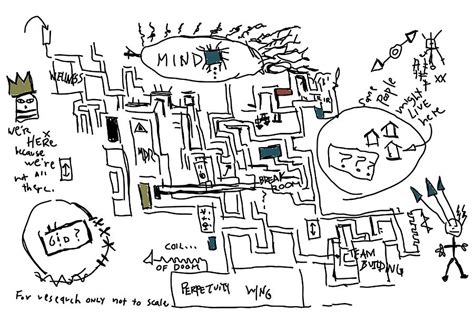 MIND
WELLNESS
some people might live here
we're HERE because we're not all there.
MDR
? ? ?
BREAK ROOM
G:D?
COIL...
OF DOOM
TEAM BUILDING
PERPETUITY WING
For research only not to scale